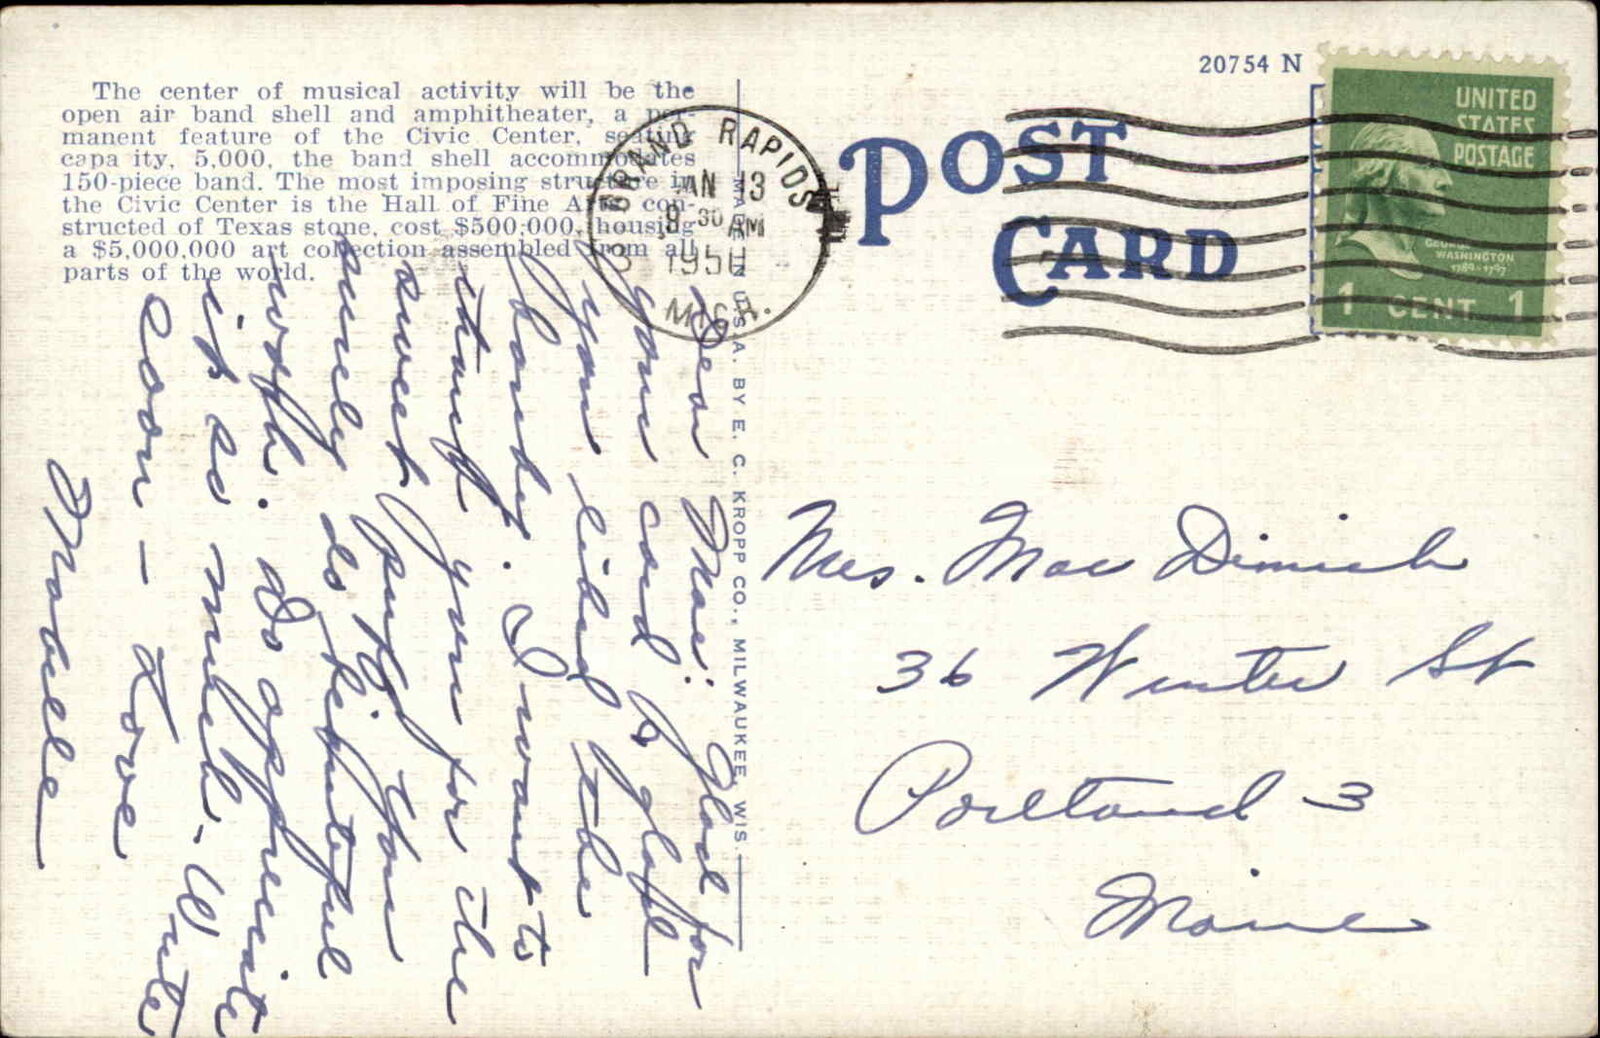 20754 N
The center of musical activity will be the
open air band shell and amphitheater, a per-
manent feature of the Civic Center, seating
capa ity, 5,000, the band shell accommodates
150-piece band. The most imposing structure in
the Civic Center is the Hall of Fine Arts con-
structed of Texas stone, cost $500,000, housing
a $5,000,000 art collection assembled from all
parts of the world.
GRAND RAPIDS
JAN 13
9 30 AM
195
MICH.
POST
CARD
UNITED
STATES
POSTAGE
GEORGE
WASHINGTON
1789-1797
1 CENT 1
MADE IN U.S.A. BY E. C. KROPP CO., MILWAUKEE, WIS.
Dear Mae: Glad for
your card & glad
you liked the
hanky. I want to
thank you for the
sweet You
surely do beautiful
work. do appreciate
it so much. Write
soon - Love
Mabelle
Mrs. Mae
36 Winter St
Portland 3
Maine